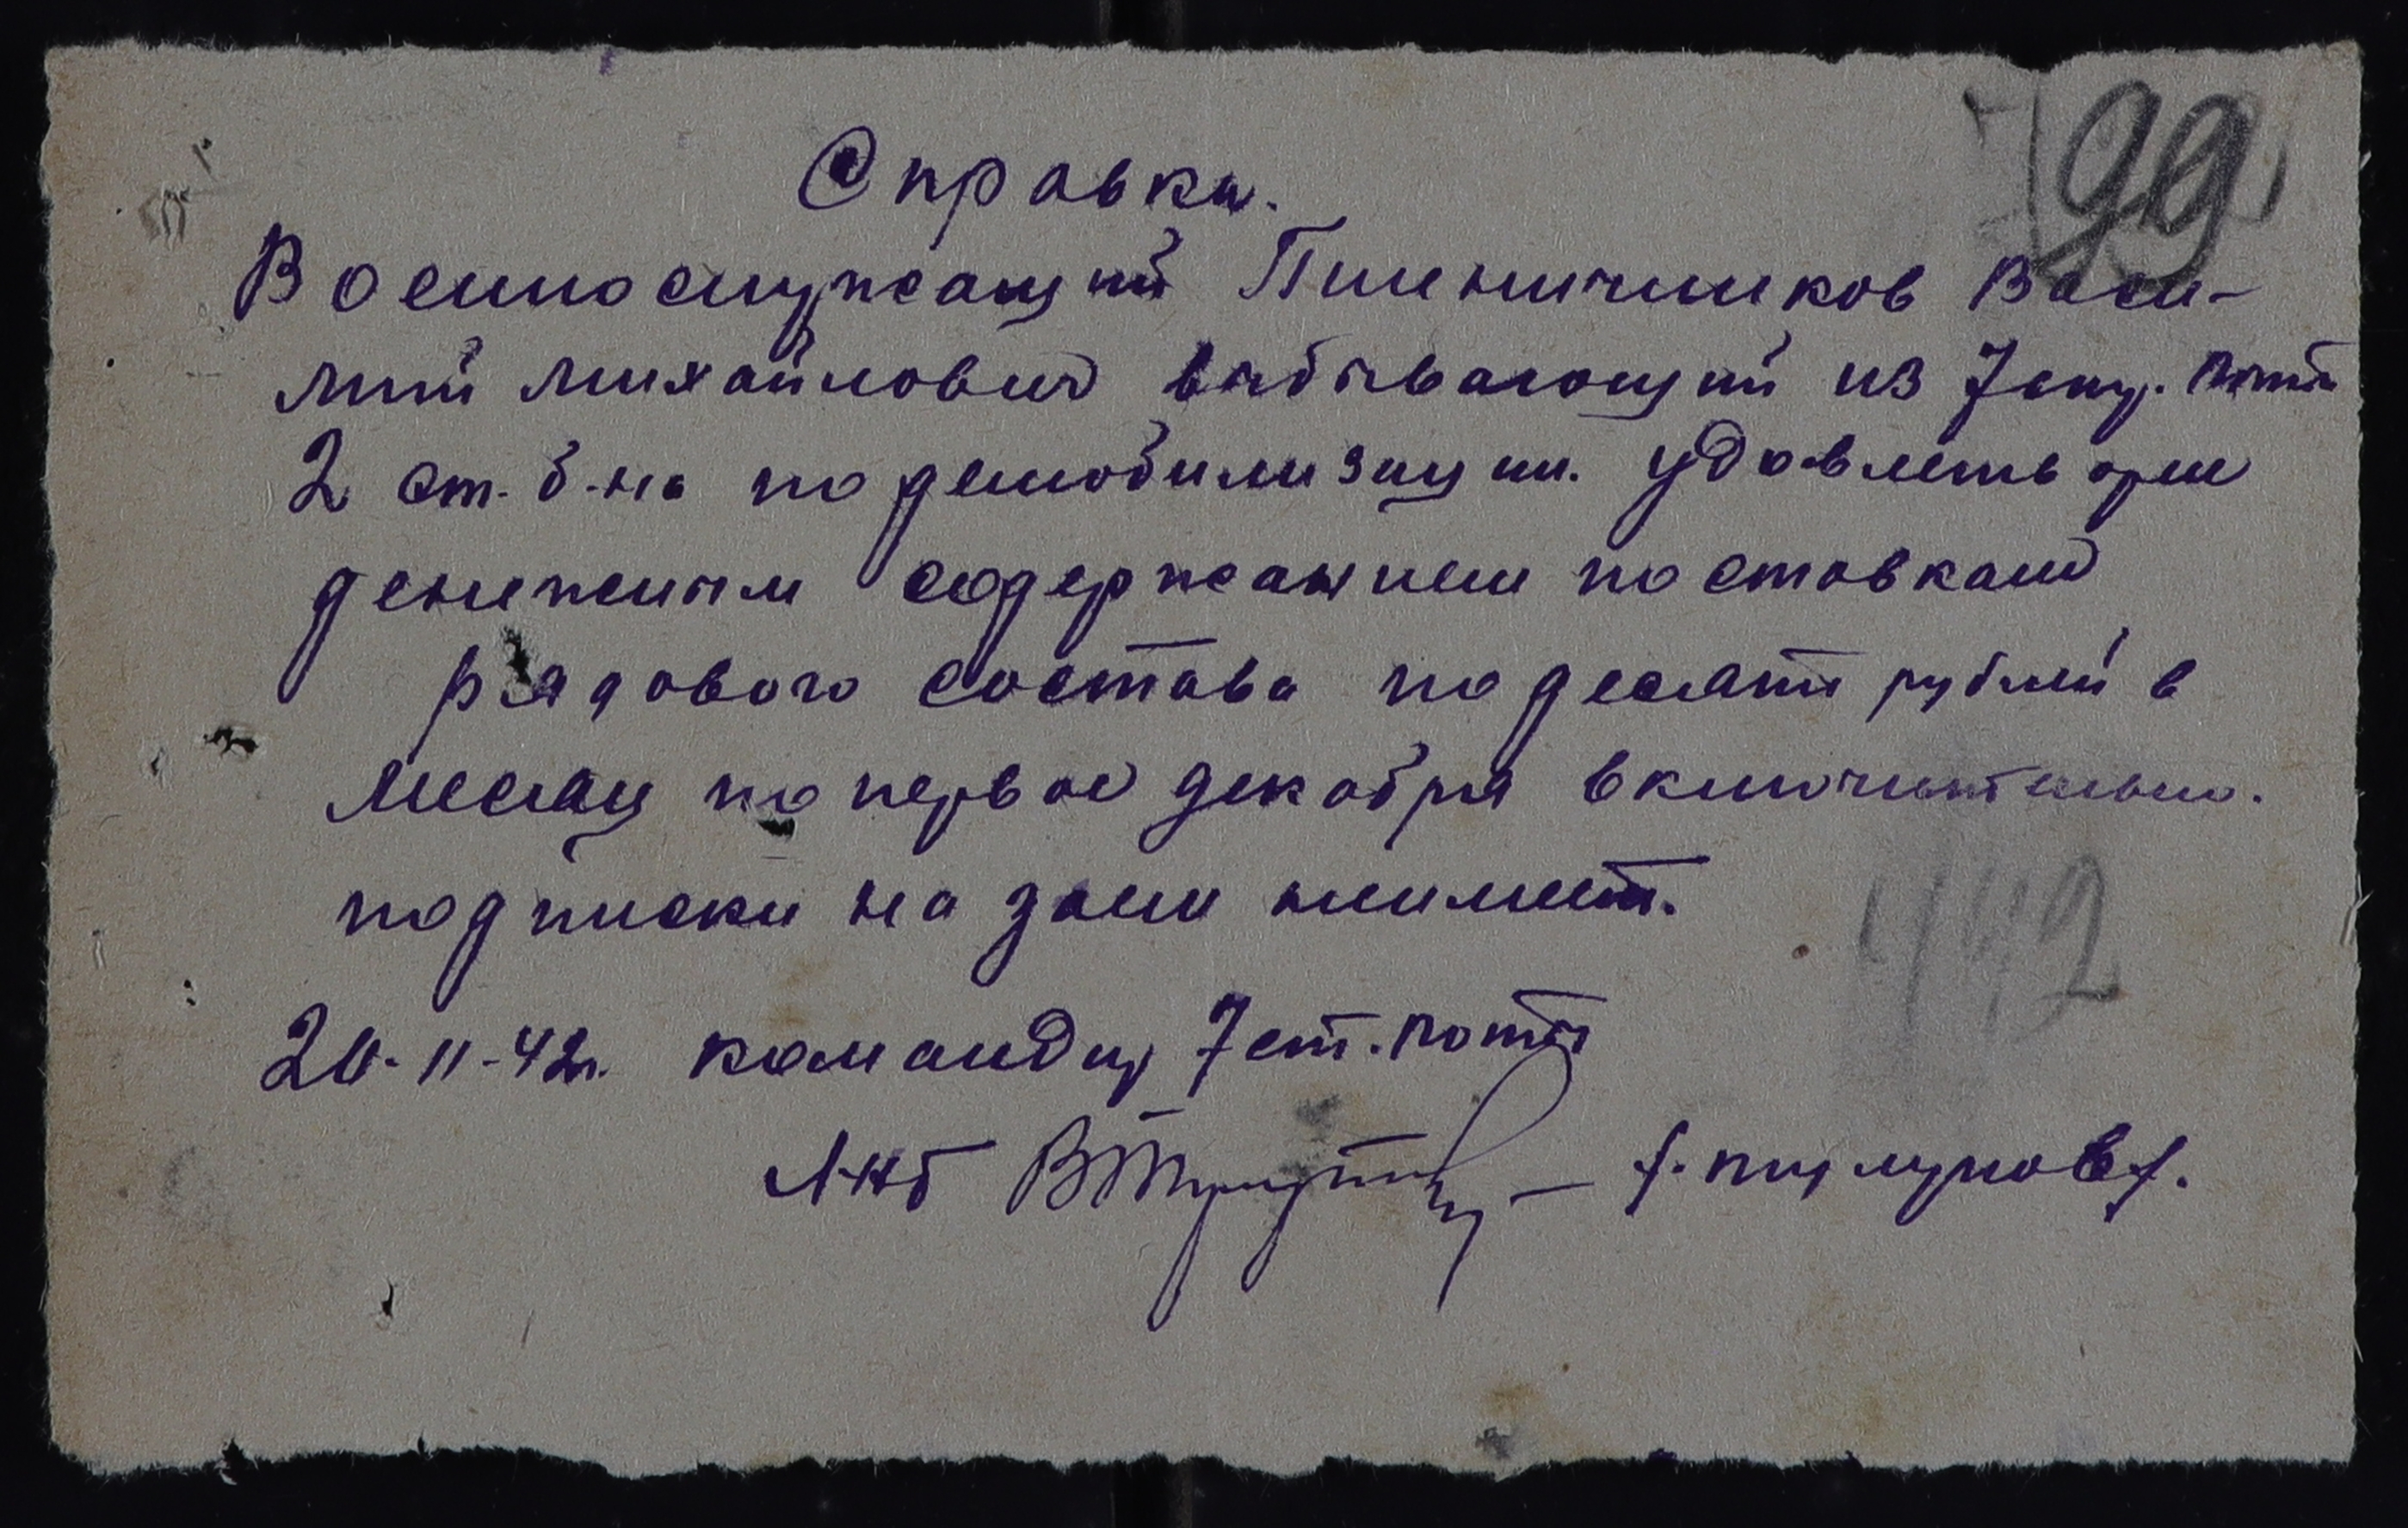 99
Справка.
Военнослужащий Пшеничников Васи-
лий Михайлович выбывающий из 7 роты
2 ст. б-на по демобилизации. Удовлетворен
денежным содержанием по ставкам
рядового состава по десяти рублей в
месяц по первое декабря включительно.
подписки на заем неимеет.
442
20-11-42г. командир 7 ст. роты
Л-нт